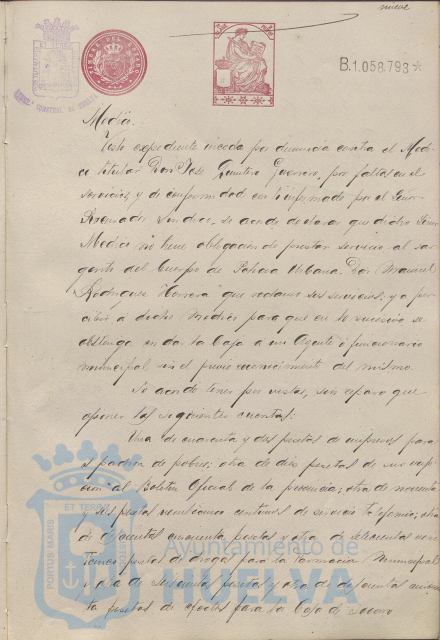 nueve
B.1.058.793*
TIMBRE DEL ESTADO
Medico.
Visto expediente incoado por denuncia contra el Medi-
co titular Don Jose Quintero Guerrero, por faltas en el
servicio, y de conformidad con lo informado por el Señor
Regidor Sindico, se acordo declarar que dicho Señor
Medico no tiene obligacion de prestar servicio al sar-
gento del Cuerpo de Policia Urbana Don Manuel
Rodriguez Herrera que reclamo sus servicios; y aper-
cibir a dicho Medico para que en lo sucesivo se
abstenga en dar la baja a un Agente o funcionario
municipal sin el previo conocimiento del mismo.
Se acordo tener por vistas, sin reparo que
oponer las siguientes cuentas:
Una de cuarenta y dos pesetas de impresos para
el padron de pobres; otra de diez pesetas de suscrip-
cion al Boletin Oficial de la provincia; otra de noventa
y seis pesetas centimos de servicio telefonico; otra
de doscientas cincuenta pesetas y otra de setecientas
pesetas de drogas para la Farmacia Municipal
y otra de sesenta pesetas y otra de doscientas
ta pesetas de efectos para la Casa de Socorro
PORTUS MARIS ET TERRAE
Ayuntamiento de
HUELVA